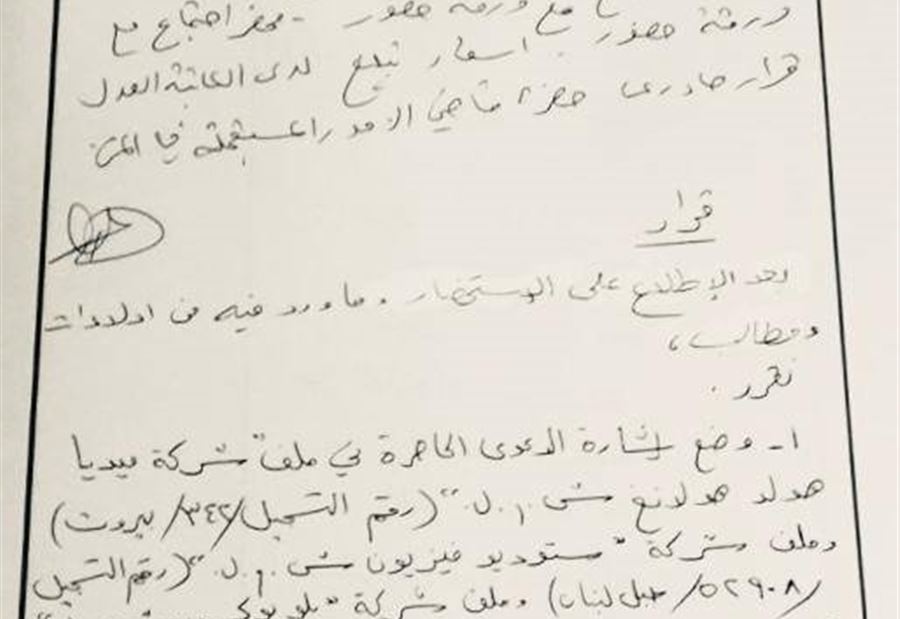 ورقة حضور مع ورقة حضور - محضر اجتماع مع
ورقة حضور. اشعار تبلغ لدى الكاتبة العدل
قرار صادر عن حضرة قاضي الامور المستعجلة في المتن
قرار
بعد الإطلاع على الاستحضار وما ورد فيه من ادلاءات
ومطالب،
نقرر.
١- وضع إشارة الدعوى الحاضرة في ملف "شركة ميديا
هولد هولدنغ ش.م.ل." (رقم التسجيل/٣٤٢/ بيروت)
وملف شركة "ستوديو فيزيون ش.م.ل." (رقم التسجيل
/٥٢٩٠٨/ جبل لبنان) وملف شركة